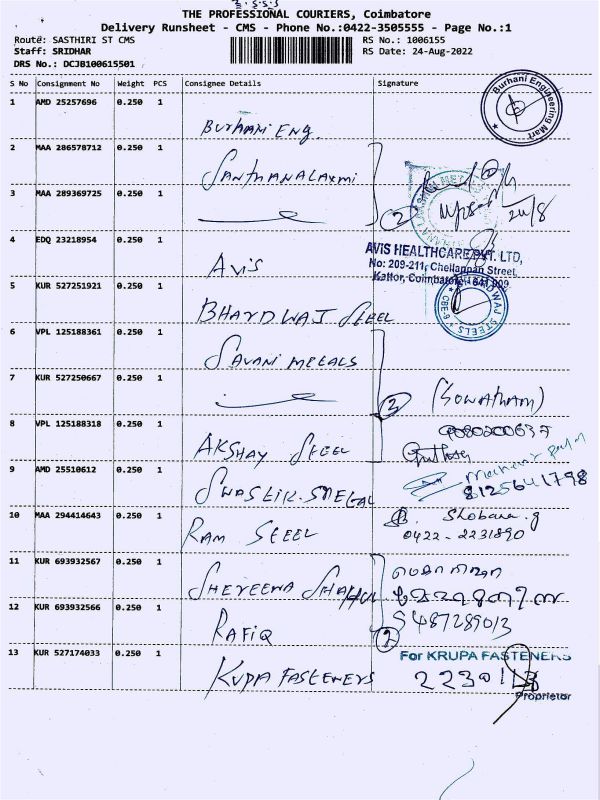 THE PROFESSIONAL COURIERS, Coimbatore
Delivery Runsheet - CMS - Phone No.:0422-3505555 - Page No.:1
Route: SASTHIRI ST CMS
RS No.: 1006155
Staff: SRIDHAR
RS Date: 24-Aug-2022
DRS No.: DCJB100615501
S No Consignment No Weight PCS Consignee Details Signature
1 AMD 25257696 0.250 1
Burhani Eng.
Burhani Engineering Mart
2 MAA 286578712 0.250 1
Santhanalaxmi
3 MAA 289369725 0.250 1
2
24/8
4 EDQ 23218954 0.250 1
Avis
AViS HEALTHCARE PVT. LTD,
No: 209-211, Chellappan Street,
Kattor, Coimbatore - 641 009
5 KUR 527251921 0.250 1
Bhardwaj Steel
BHARDWAJ STEELS
CBE-9
6 VPL 125188361 0.250 1
Savani Metals
7 KUR 527250667 0.250 1
8 VPL 125188318 0.250 1
Akshay Steel
9 AMD 25510612 0.250 1
Swastik Metal
8125641798
10 MAA 294414643 0.250 1
Ram Steel
Shobana.g
0422-2231890
11 KUR 693932567 0.250 1
12 KUR 693932566 0.250 1
Rafiq
2
13 KUR 527174033 0.250 1
Kupa Fasteners
For KRUPA FASTENERS
Proprietor